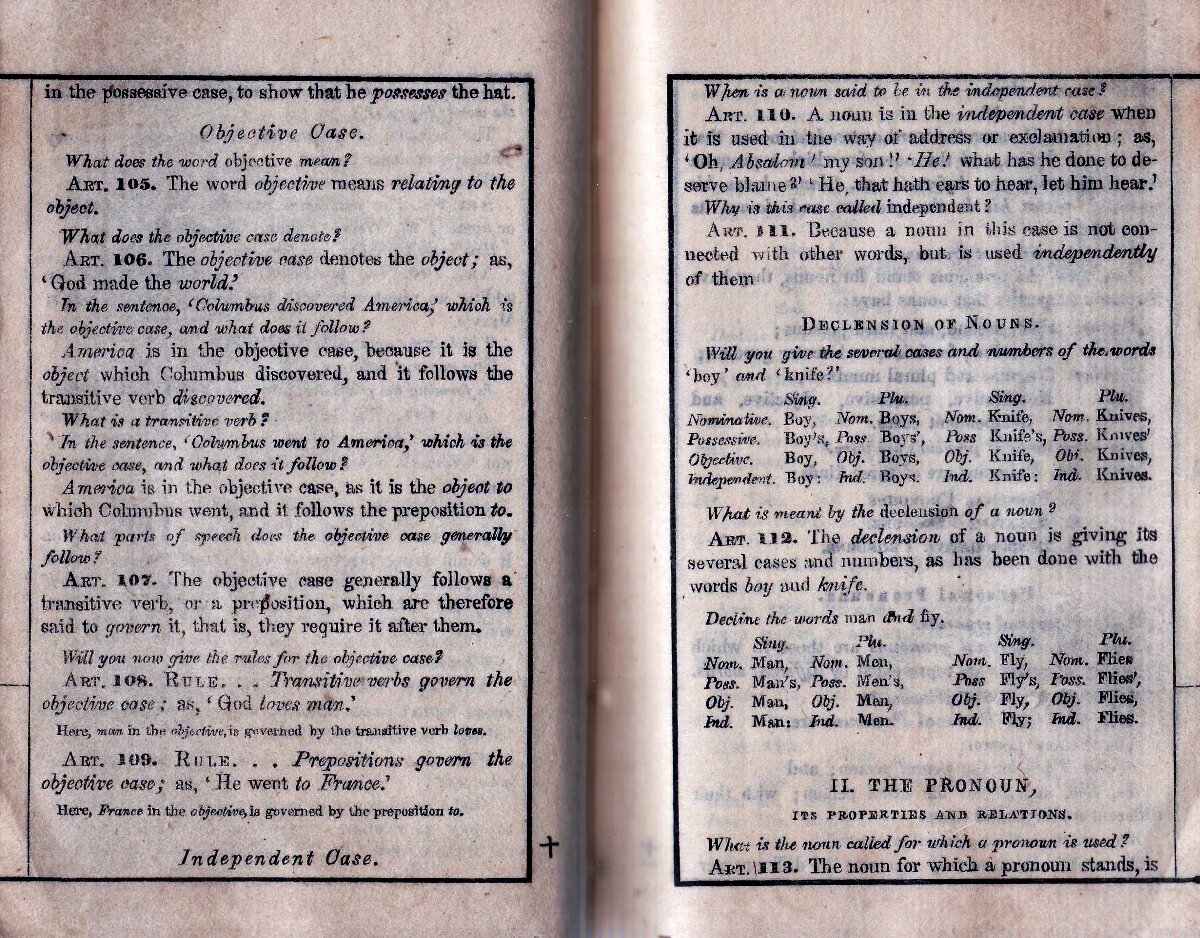 in the possessive case, to show that he possesses the hat.
Objective Case.
What does the word objective mean?
ART. 105. The word objective means relating to the
object.
What does the objective case denote?
ART. 106. The objective case denotes the object; as,
'God made the world.'
In the sentence, 'Columbus discovered America,' which is
the objective case, and what does it follow?
America is in the objective case, because it is the
object which Columbus discovered, and it follows the
transitive verb discovered.
What is a transitive verb?
In the sentence, 'Columbus went to America,' which is the
objective case, and what does it follow?
America is in the objective case, as it is the object to
which Columbus went, and it follows the preposition to.
What parts of speech does the objective case generally
follow?
ART. 107. The objective case generally follows a
transitive verb, or a preposition, which are therefore
said to govern it, that is, they require it after them.
Will you now give the rules for the objective case?
ART. 108. RULE. . . Transitive verbs govern the
objective case; as, 'God loves man.'
Here, man in the objective, is governed by the transitive verb loves.
ART. 109. RULE. . . Prepositions govern the
objective case; as, 'He went to France.'
Here, France in the objective, is governed by the preposition to.
Independent Case.
When is a noun said to be in the independent case?
ART. 110. A noun is in the independent case when
it is used in the way of address or exclamation; as,
'Oh, Absalom! my son!' 'He! what has he done to de-
serve blame?' 'He, that hath ears to hear, let him hear.'
Why is this case called independent?
ART. 111. Because a noun in this case is not con-
nected with other words, but is used independently
of them
DECLENSION OF NOUNS.
Will you give the several cases and numbers of the words
'boy' and 'knife?'
Sing. Plu. Sing. Plu.
Nominative. Boy, Nom. Boys, Nom. Knife, Nom. Knives,
Possessive. Boy's, Poss. Boys', Poss Knife's, Poss. Knives'
Objective. Boy, Obj. Boys, Obj. Knife, Obj. Knives,
Independent. Boy: Ind. Boys. Ind. Knife: Ind. Knives.
What is meant by the declension of a noun?
ART. 112. The declension of a noun is giving its
several cases and numbers, as has been done with the
words boy and knife.
Decline the words man and fly.
Sing. Plu. Sing. Plu.
Nom. Man, Nom. Men, Nom. Fly, Nom. Flies
Poss. Man's, Poss. Men's, Poss Fly's, Poss. Flies',
Obj. Man, Obj. Men, Obj. Fly, Obj. Flies,
Ind. Man: Ind. Men. Ind. Fly; Ind. Flies.
II. THE PRONOUN,
ITS PROPERTIES AND RELATIONS.
What is the noun called for which a pronoun is used?
ART. 113. The noun for which a pronoun stands, is